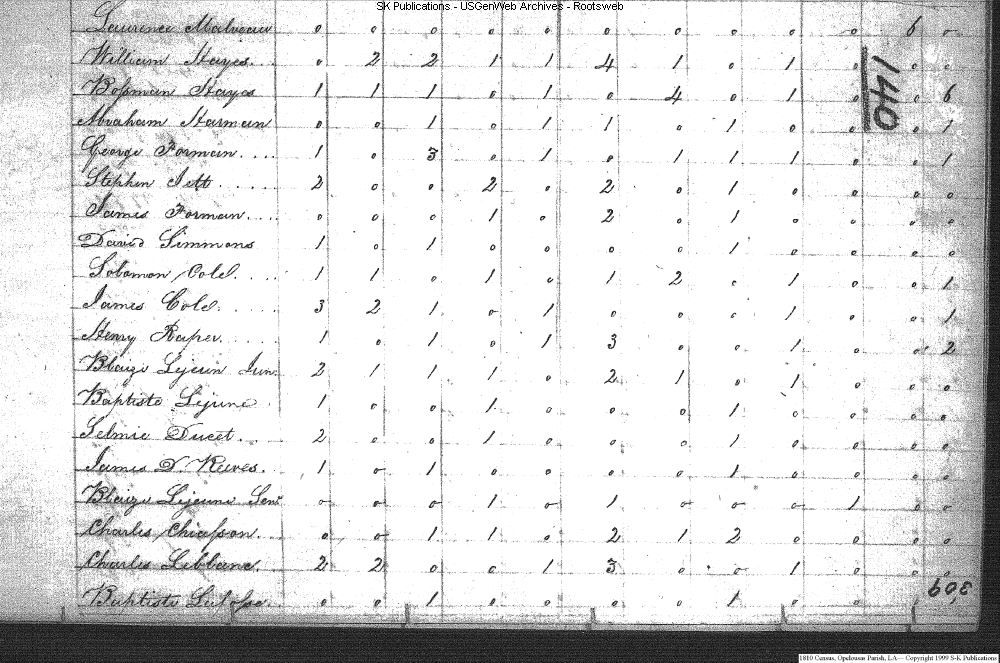 SK Publications - USGenWeb Archives - Rootsweb
Laurence Malveau 0 0 0 0 0 0 0 0 0 0 6 0
William Hayes. . 0 2 2 1 1 4 1 0 1 0 0 0
Bossman Hayes 1 1 1 0 1 0 4 0 1 0 0 6
140
Abraham Harman 0 0 1 0 1 1 0 1 0 0 0 1
George Forman. . . . 1 0 3 0 1 0 1 1 1 0 0 1
Stephen Jett . . . . 2 0 0 2 0 2 0 1 0 0 0 0
James Forman. . . . 0 0 0 1 0 2 0 1 0 0 0 0
David Simmons 1 0 1 0 0 0 0 1 0 0 0 0
Solomon Cole. . . . 1 1 0 1 0 1 2 0 1 0 0 1
James Cole. . . . . 3 2 1 0 1 0 0 0 1 0 0 1
Henry Raper. . . . . 1 0 1 0 1 3 0 0 1 0 0 2
Blaize Lejeun Jun. 2 1 1 1 0 2 1 0 1 0 0 0
Baptiste Lejune 1 0 0 1 0 0 0 1 0 0 0 0
Selmie Ducet. . 2 0 0 1 0 0 0 1 0 0 0 0
James D. Reeves. 1 0 1 0 0 0 0 1 0 0 0 0
Blaize Lejeune Senr 0 0 0 1 0 1 0 0 0 1 0 0
Charles Chiasson. 0 0 1 1 0 2 1 2 0 0 0 0
Charles Leblanc. 2 2 0 0 1 3 0 0 1 0 0 0
Baptiste 0 0 1 0 0 0 0 1 0 0
309
1810 Census, Opelousas Parish, LA -- Copyright 1999 S-K Publications